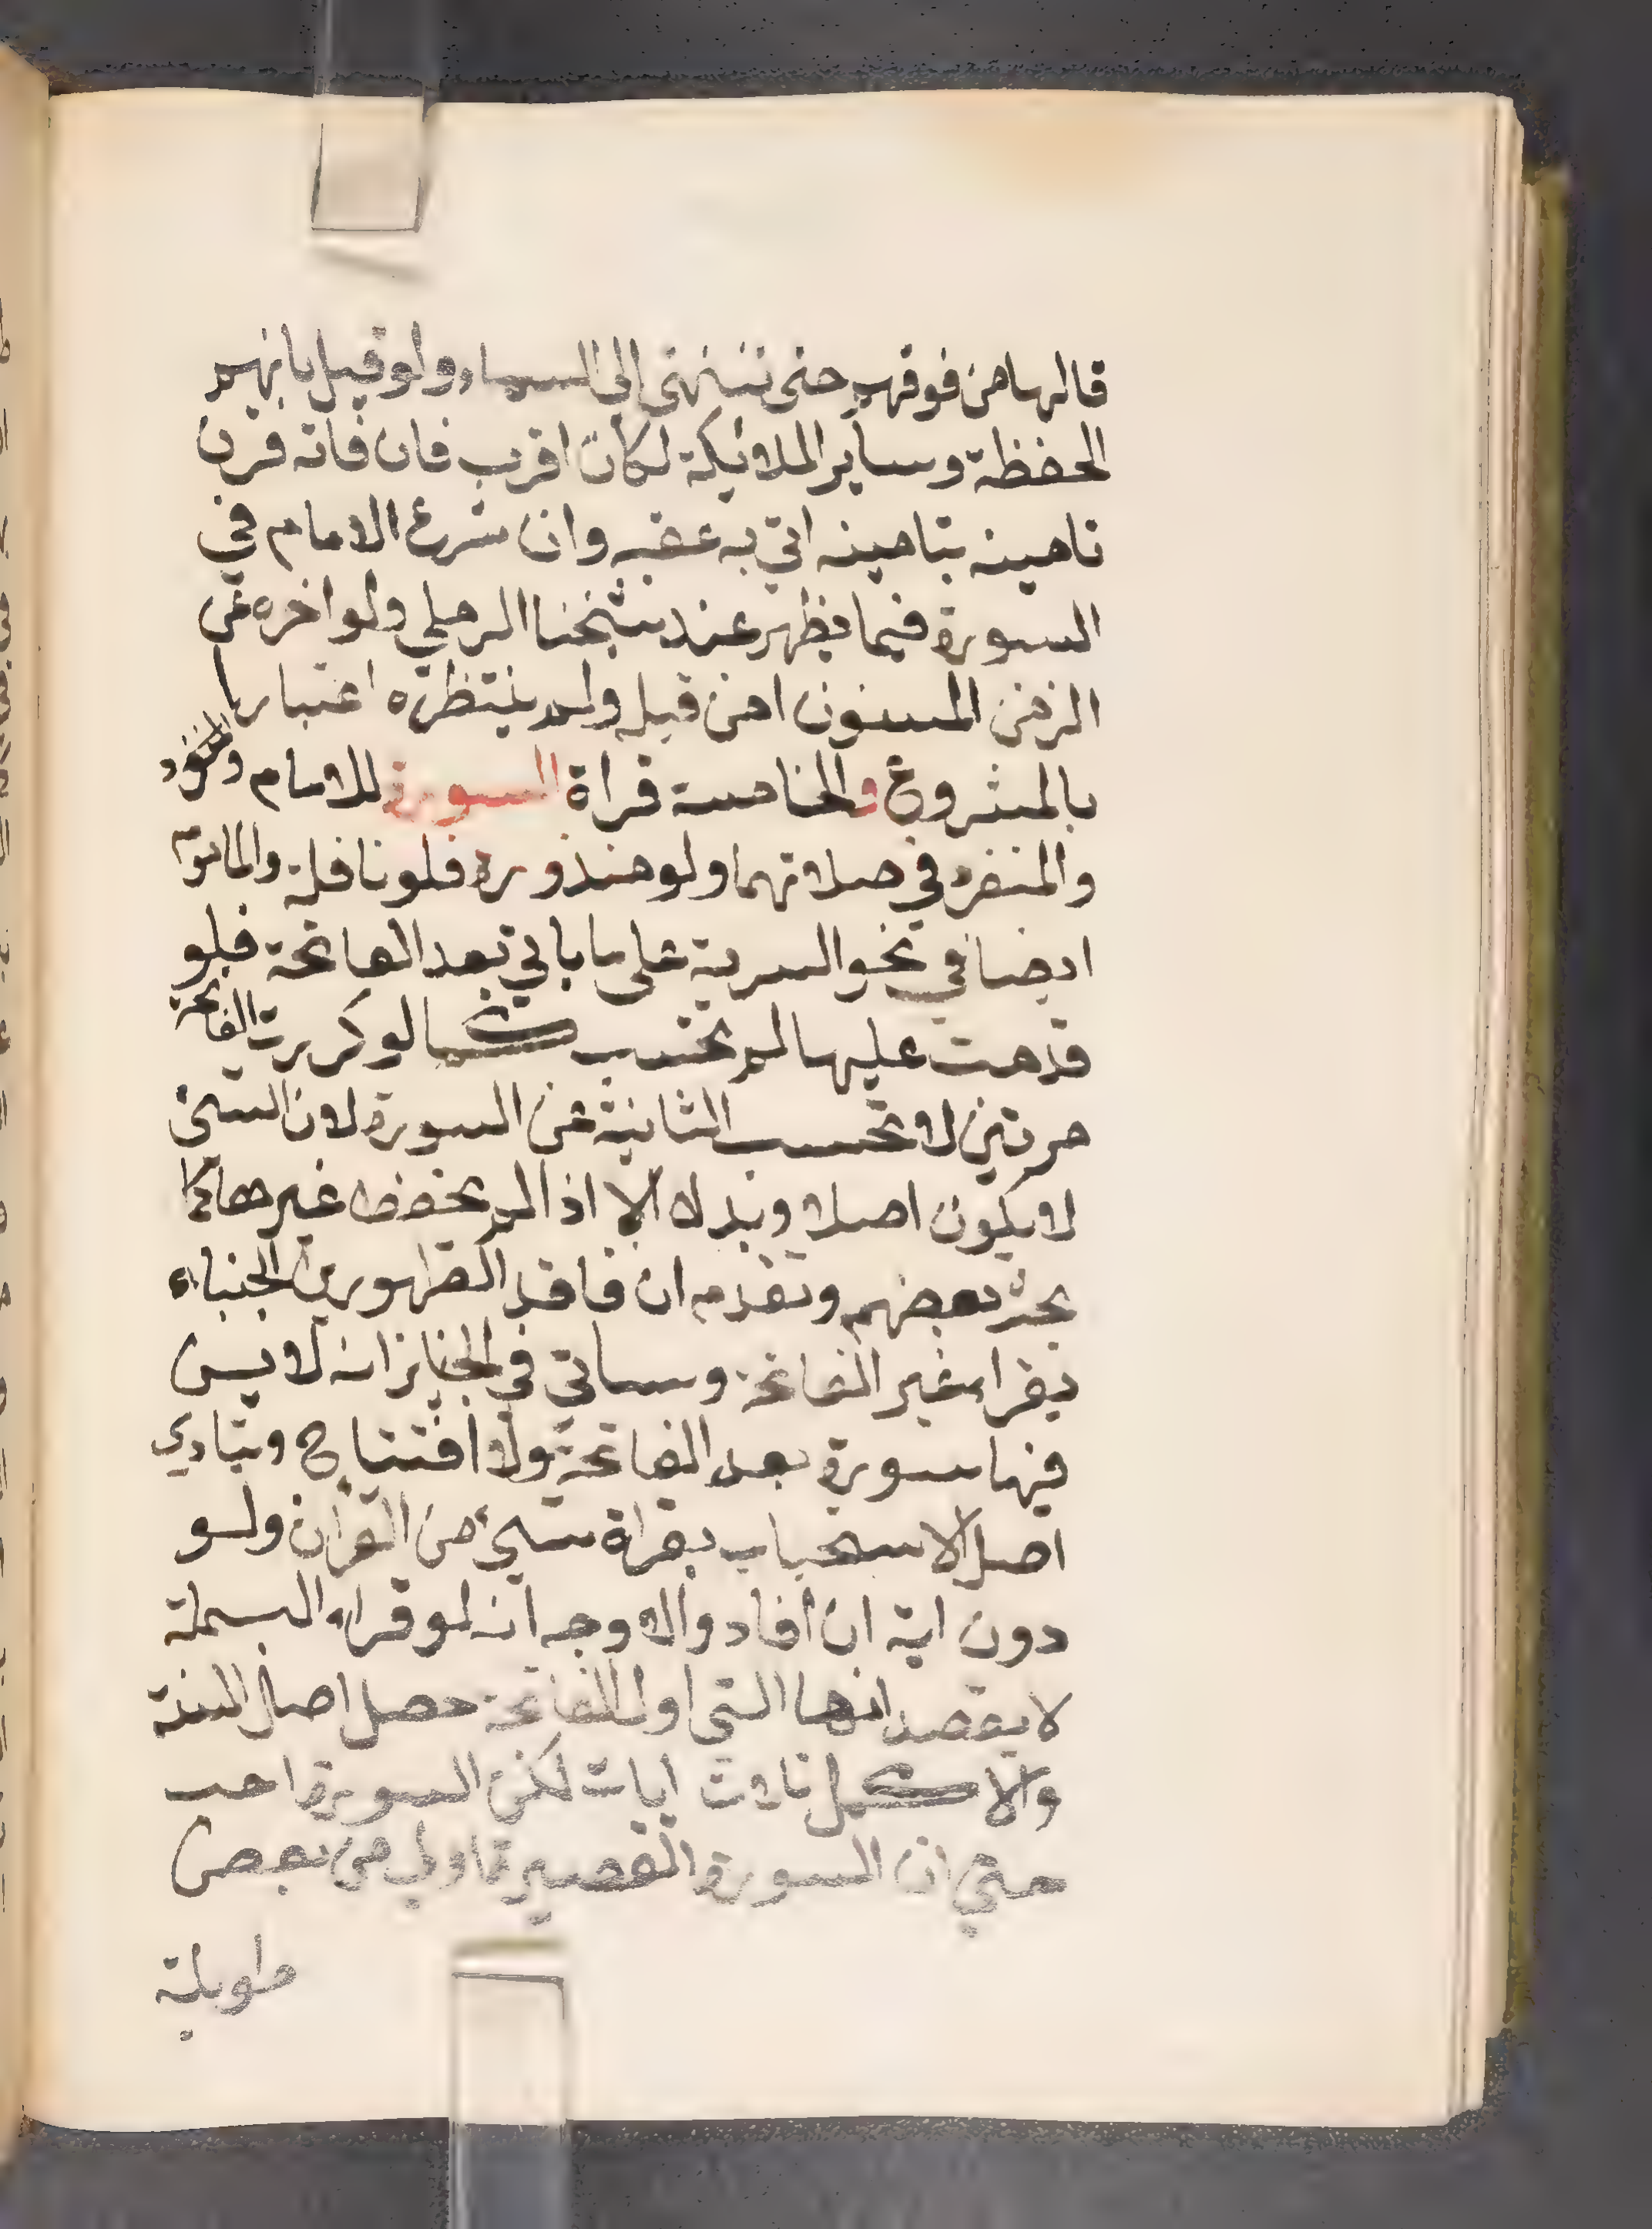 قالها من فوقهم حتى تنتهي الى السماء ولو قيل بانهم
الحفظة وساير الملائكة لكان اقرب فان فاته قرن
تامينه بتامينه اتي به عقبه وان شرع الامام في
السورة فيما يظهر عند شيخنا الرملي ولو اخره عن
الزمن المسنون امن قبله ولم ينتظره اعتبارا
بالمشروع والخامسة قراة السورة للامام
والمنفرد في صلاتهما ولو منذورة فلو نافلة والماموم
ايضا في نحو السرية على ما ياتي بعد الفاتحة فلو
قدمت عليها لم تحسب كما لو كررت الفاتحة
مرتين لا تحسب الثانية عن السورة لان الشي
لا يكون اصلا وبدلا الا اذا لم يحفظ غيرها كما
بحثه بعضهم وتقدم ان فاقد الطهورين الجنب لا
يقرا غير الفاتحة وسياتي في الجنايز انه لا يسن
فيها سورة بعد الفاتحة ولا افتتاح ويتادي
اصل الاستحباب بقراة شيء من القران ولو
دون اية ان افاد والاوجه انه لو قرا البسملة
لا بقصد انها التي اول الفاتحة حصل اصل السنة
والاكمل ثلاث ايات لكن السورة احب
حتي ان السورة القصيرة اولي من بعض
طويلة